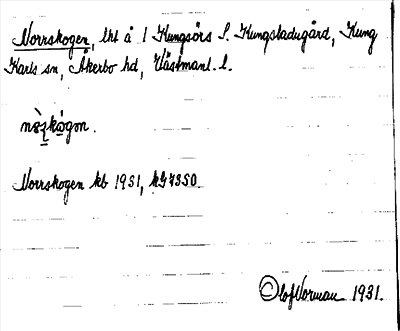 Norrskogen, lht å 1 Kungsörs f. Kungsladugård, Kung
Karls sn, Åkerbo hd, Västmanl. l.
Norrskogen kb 1931, kG 7350.
Olof Vorman 1931.